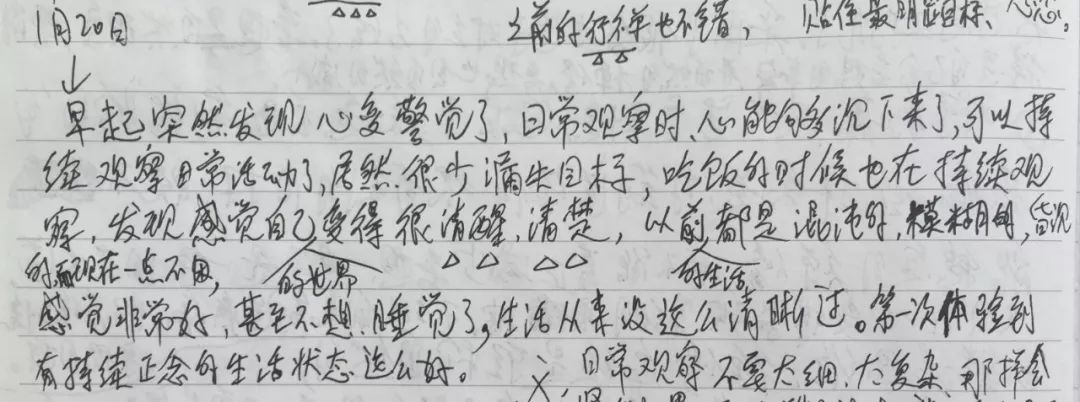 1月20日 之前的行禅也不错, 贴住最明显目标、
早起突然发现心变警觉了,日常观察时,心能够沉下来了,可以持
续观察日常活动了,居然很少漏失目标,吃饭的时候也在持续观
察,发现感觉自己变得很清醒,清楚,以前都是混沌的,模糊的,昏沉
的而现在一点不困, 的世界 的生活
感觉非常好,甚至不想睡觉了,生活从来没这么清晰过。第一次体验到
有持续正念的生活状态这么好。 日常观察不要太细、太复杂,那样会